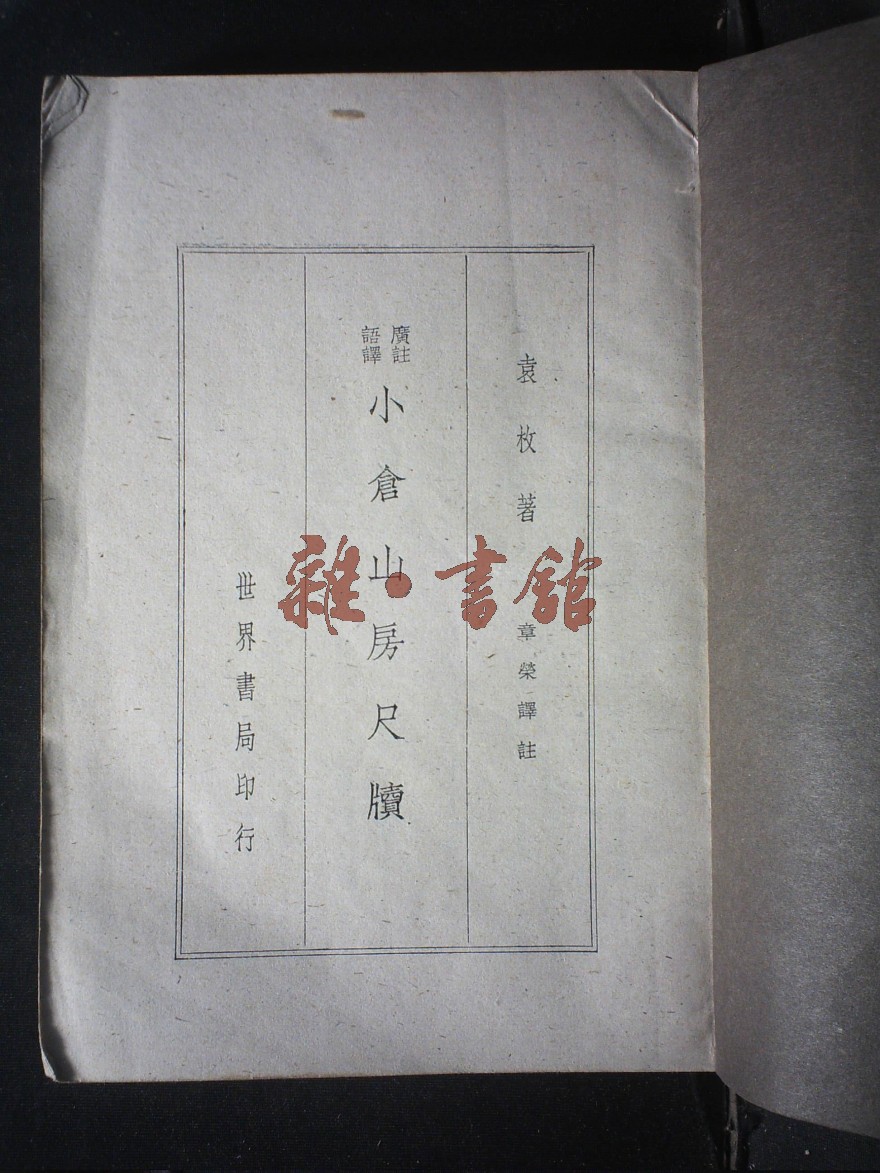 袁枚著 章榮譯註
廣註
語譯
小倉山房尺牘
世界書局印行
雜·書館